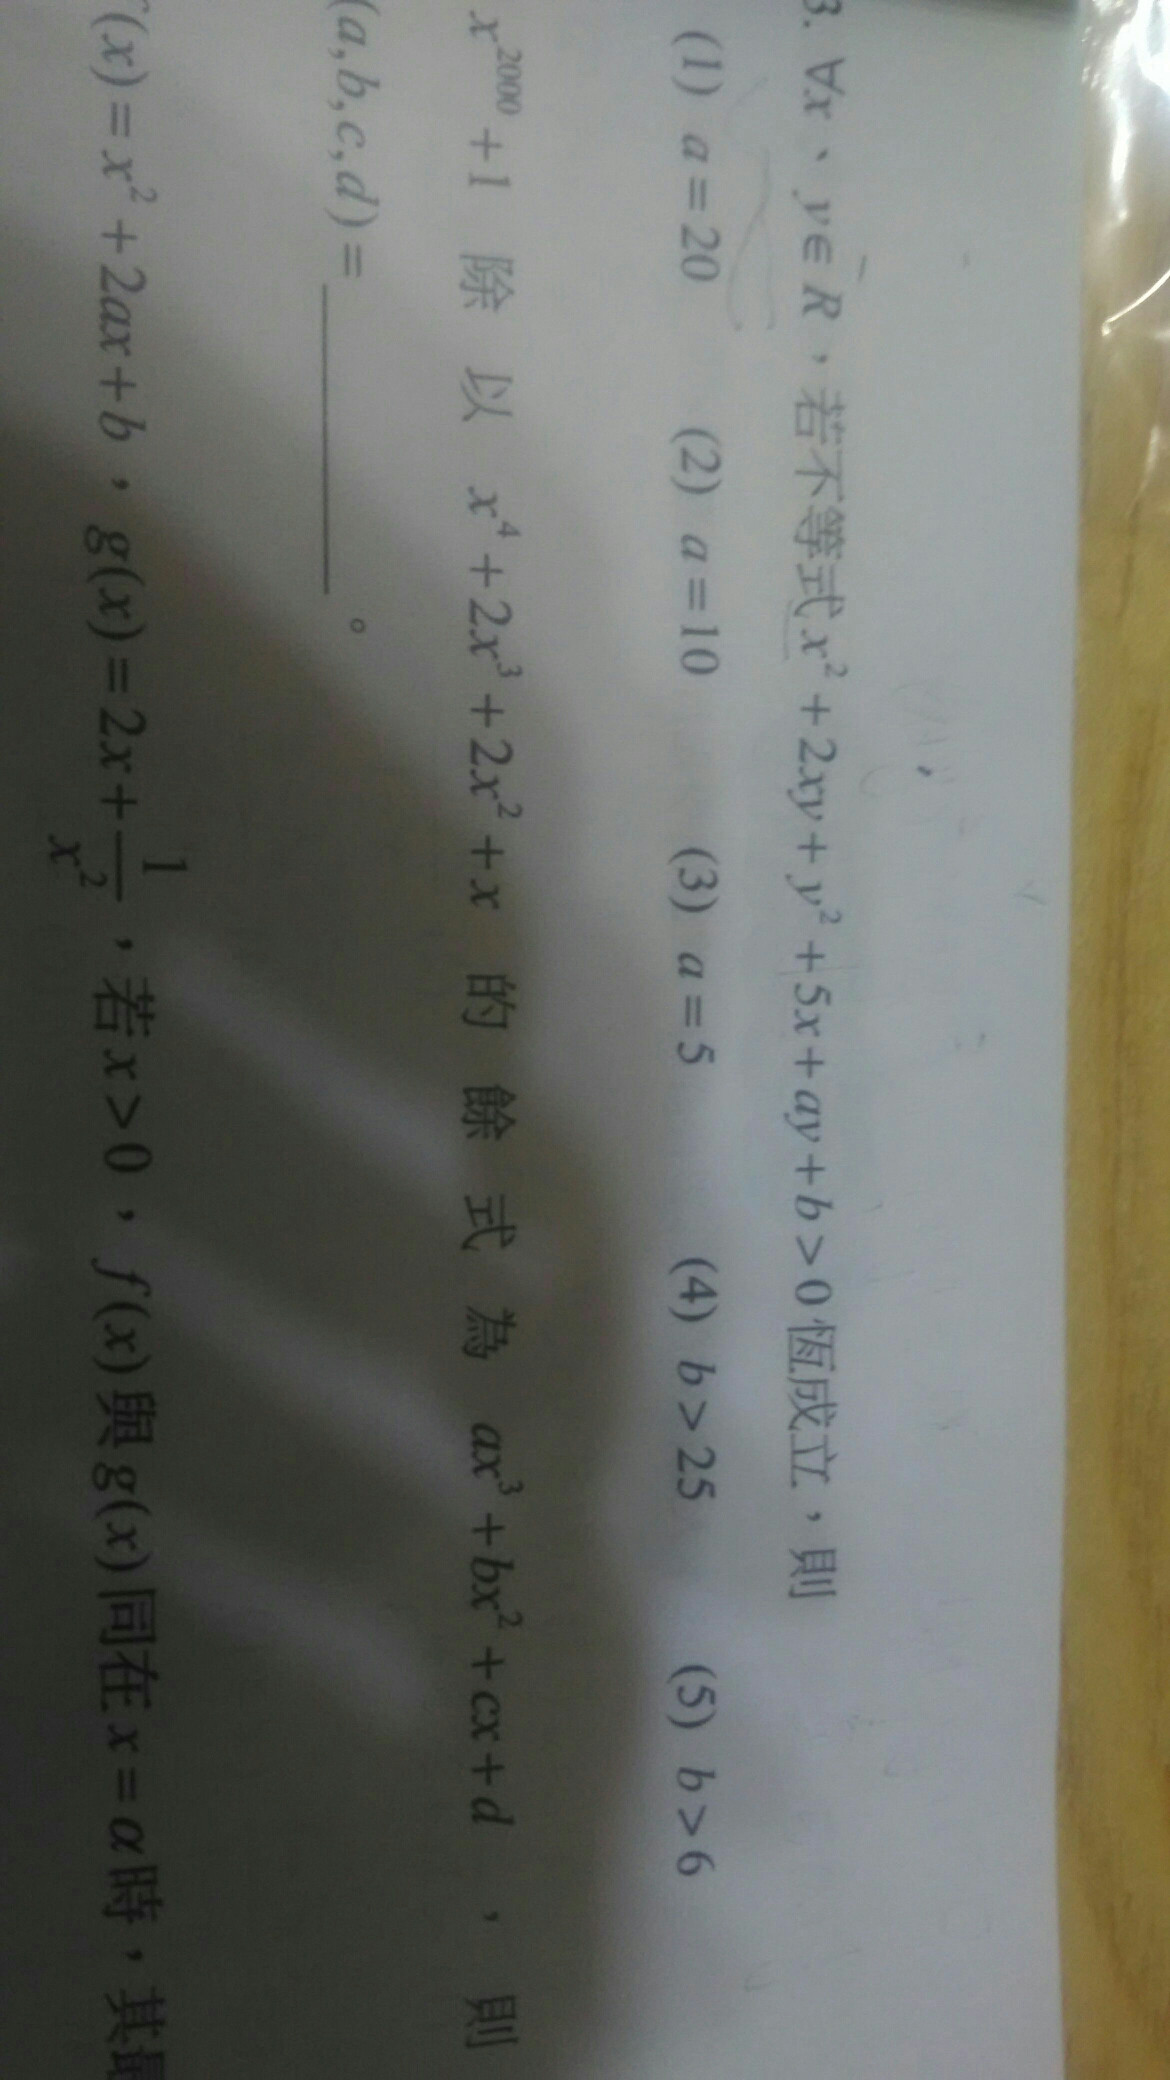 3. ∀x、y∈R，若不等式x²+2xy+y²+5x+ay+b>0恆成立，則
(1) a=20 (2) a=10 (3) a=5 (4) b>25 (5) b>6
x²⁰⁰⁰+1 除 以 x⁴+2x³+2x²+x 的 餘 式 為 ax³+bx²+cx+d ，則
(a,b,c,d)=______。
(x)=x²+2ax+b，g(x)=2x+1/x²，若x>0，f(x)與g(x)同在x=α時，其最